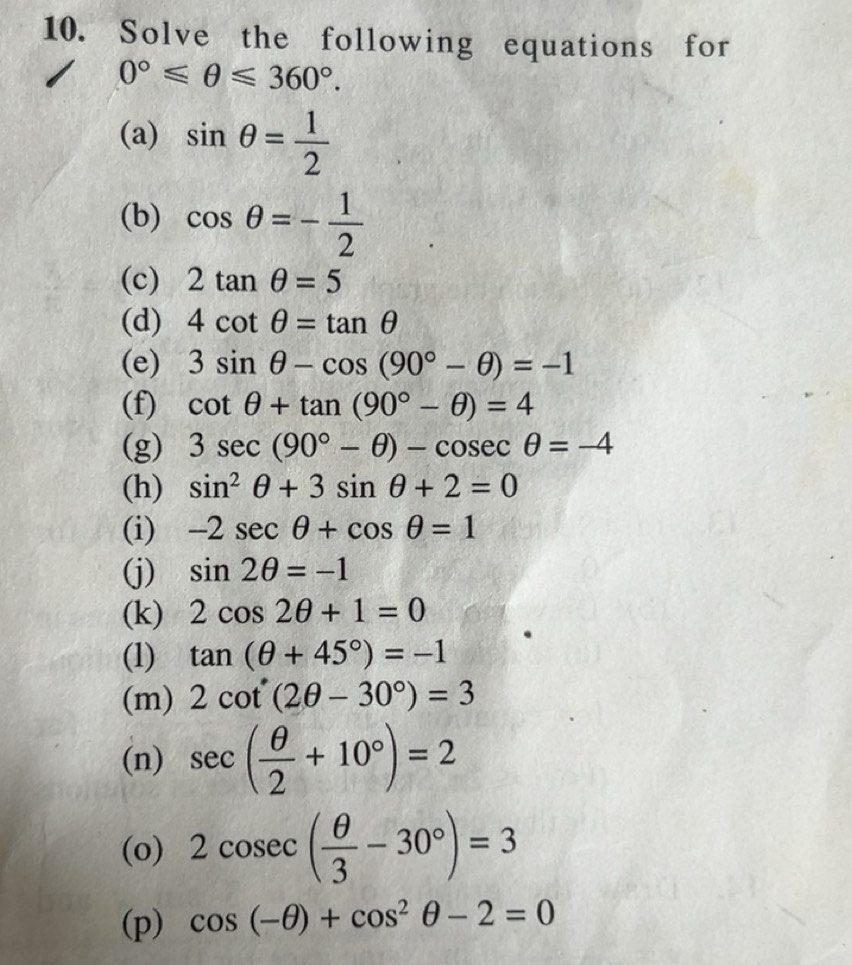 10. Solve the following equations for
0° ⩽ θ ⩽ 360°.
(a) sin θ = 1/2
(b) cos θ = – 1/2
(c) 2 tan θ = 5
(d) 4 cot θ = tan θ
(e) 3 sin θ – cos (90° – θ) = –1
(f) cot θ + tan (90° – θ) = 4
(g) 3 sec (90° – θ) – cosec θ = –4
(h) sin² θ + 3 sin θ + 2 = 0
(i) –2 sec θ + cos θ = 1
(j) sin 2θ = –1
(k) 2 cos 2θ + 1 = 0
(l) tan (θ + 45°) = –1
(m) 2 cot (2θ – 30°) = 3
(n) sec (θ/2 + 10°) = 2
(o) 2 cosec (θ/3 – 30°) = 3
(p) cos (–θ) + cos² θ – 2 = 0